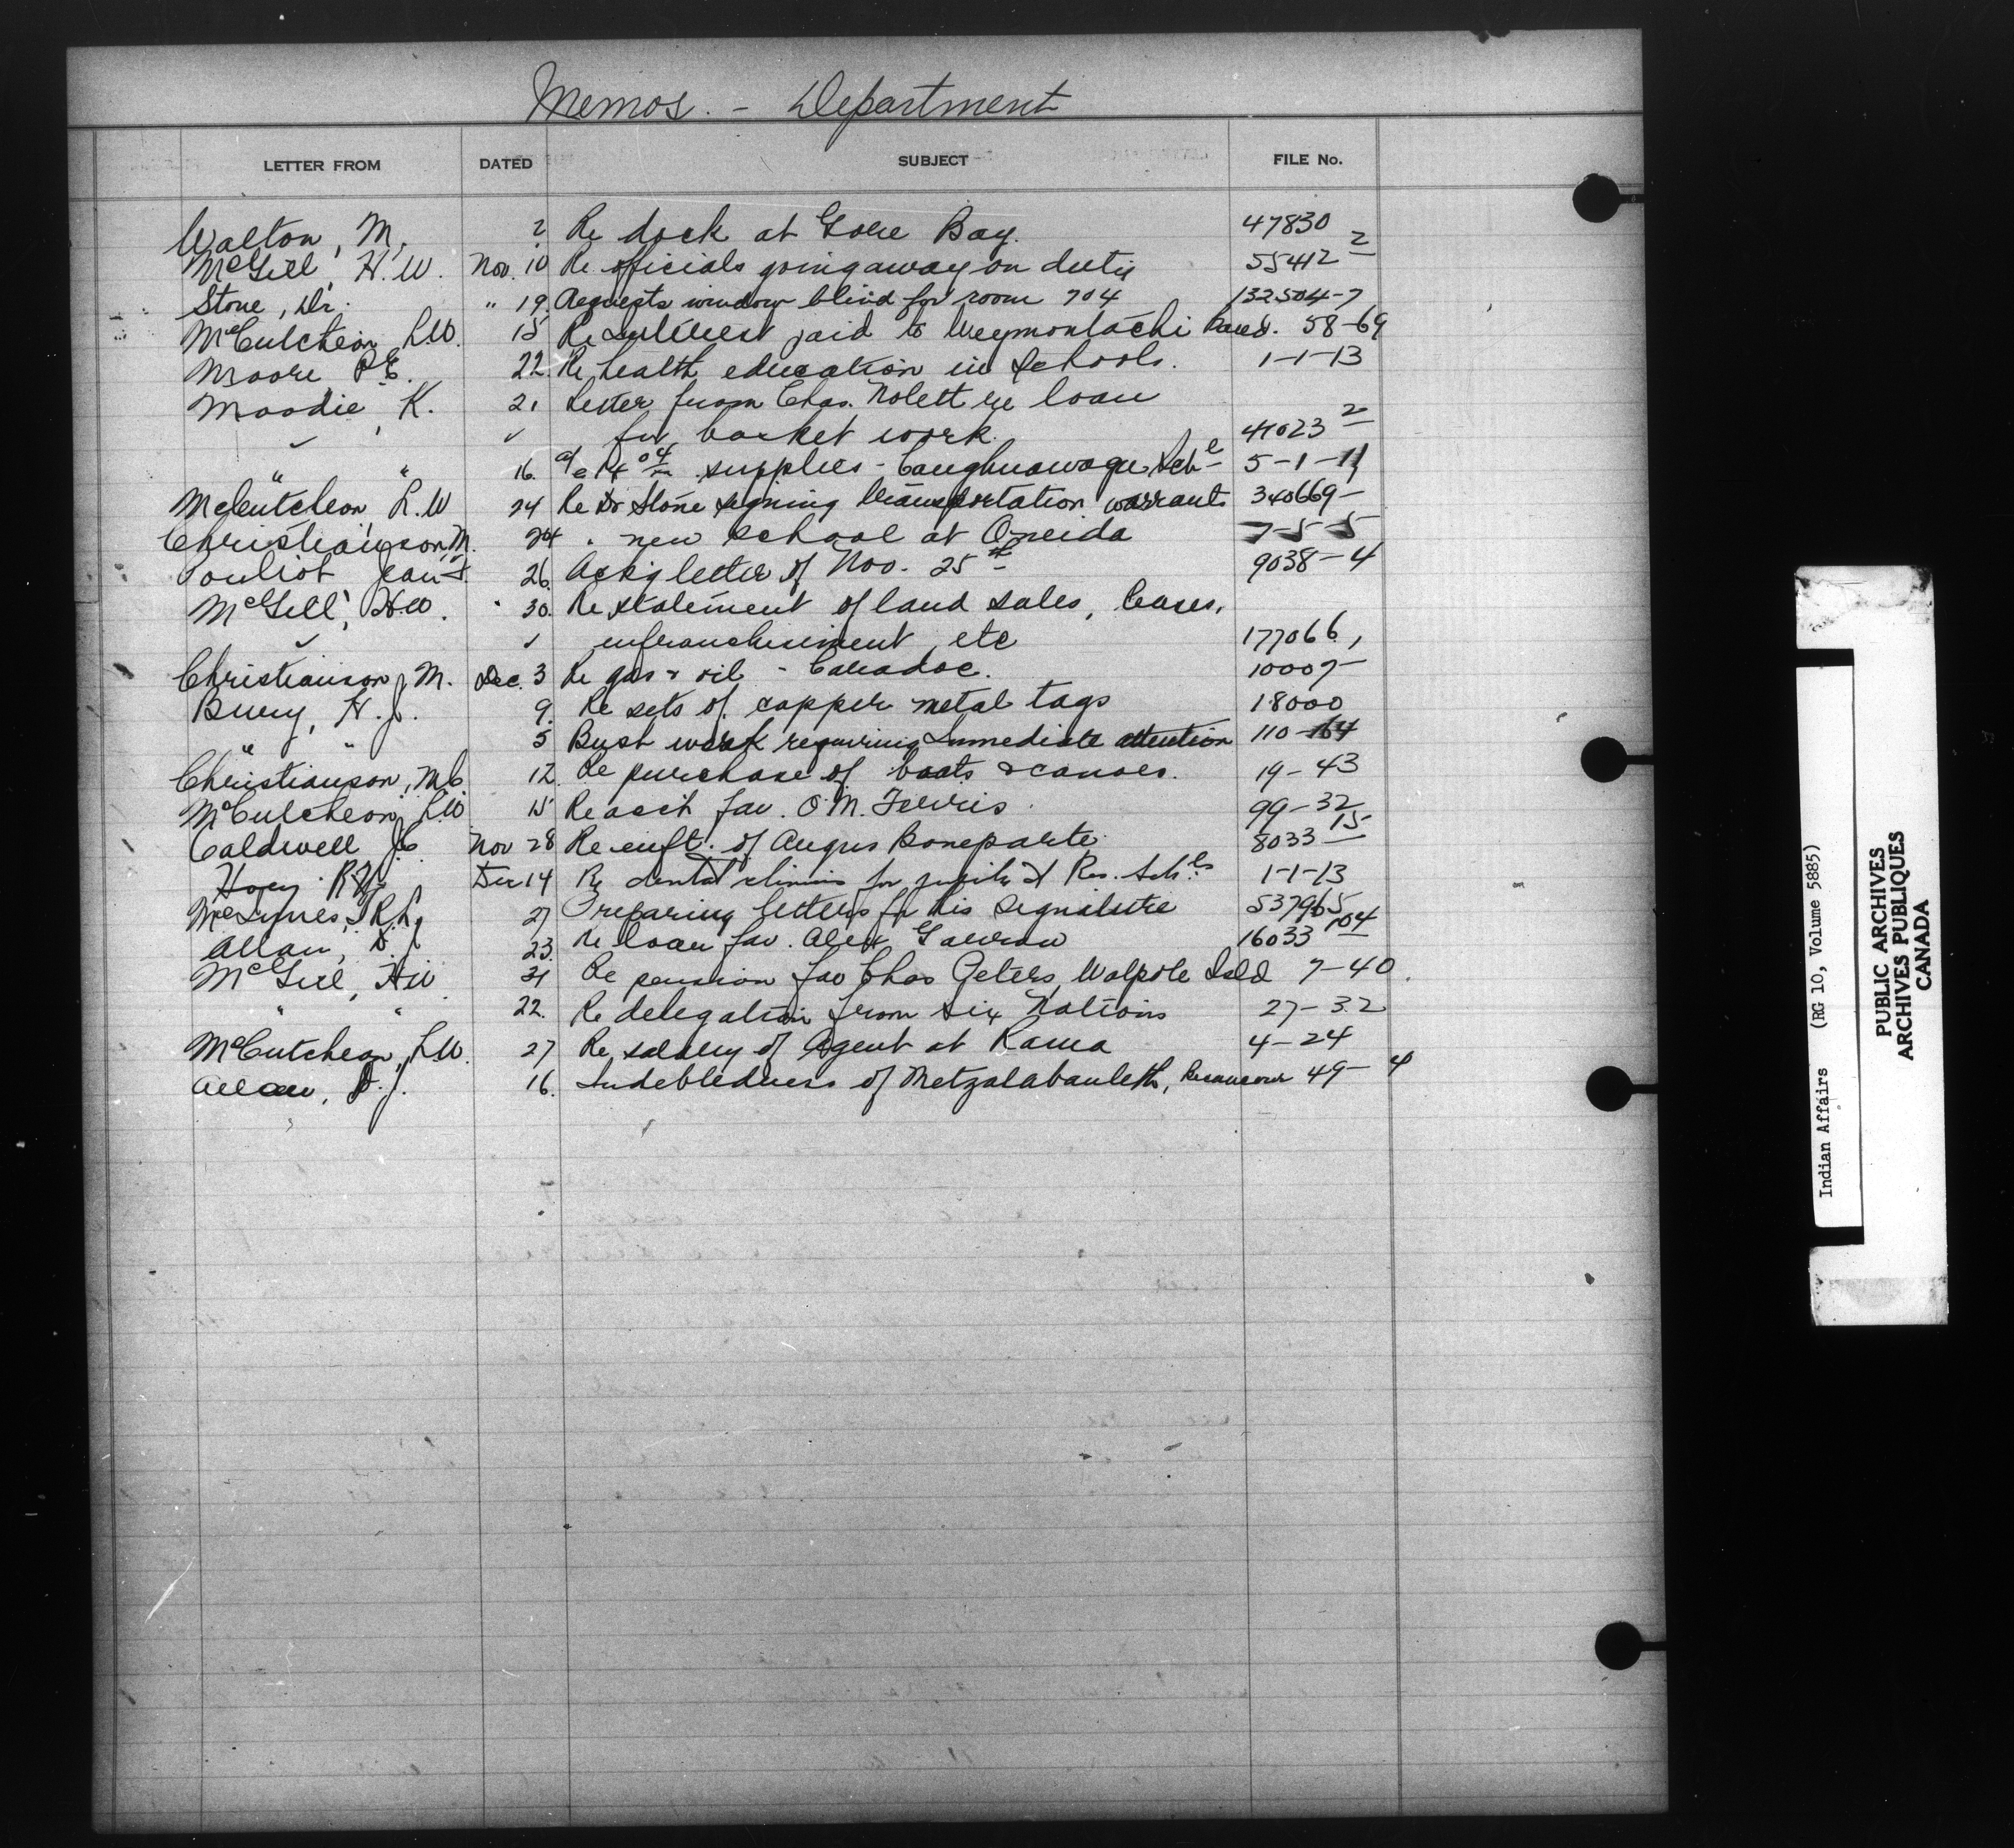 Memos. - Department
LETTER FROM DATED SUBJECT FILE No.
Walton, M. 2 Re dock at Gore Bay. 47830
McGill, H.W. Nov. 10 Re officials going away on duty 55412 2
Stone, Dr. " 19. Requests window blind for room 704 132504-7
McCutcheon, L.W. 15 Re Interest paid to Weymontachi Band. 58-69
Moore, P.E. 22. Re health education in Schools. 1-1-13
Moodie, K. 21 Letter from Chas. Nolett re loan
✓ ✓ for basket work. 41023 2
" " 16. a/c 14 04 supplies - Caughnawaga Sch l 5-1-11
McCutcheon, L.W 24 Re Dr Stone signing transportation warrants 340669-
Christianson, M. 24 " new school at Oneida 7-5-5
Pouliot, Jean F. 26. Ack'g letter of Nov. 25th 9038-4
McGill, H.W. " 30. Re statement of land sales, leases,
✓ ✓ enfranchisement, etc 177066,
Christianson, M. Dec. 3 Re gas & oil - Caradoc. 10007-
Bury, H.J. 9. Re sets of copper metal tags 18000
" " 5 Bush work requiring Immediate attention 110-164
Christianson, M.C. 12. Re purchase of boats & canoes. 19-43
McCutcheon, L.W 15 Re acct fav. O.M. Ferris 99-32
Caldwell J.C. Nov 28 Re enft. of Angus Boneparte 8033 15
Hoey R.A. Dec 14 Re dental clinics for pupils at Res. Schls 1-1-13
McInnes, T.R.L. 27 Preparing letters for his signature 537965
Allan, D.J. 23. Re loan fav. Alex 16033 104
McGill, H.W. 21 Re pension fav Chas Peters, Walpole Isld 7-40.
" " 22. Re delegation from Six Nations 27-32
McCutcheon, L.W. 27 Re salary of Agent at Rama 4-24
Allan, D.J. 16. Indebtedness of 49-4
Indian Affairs (RG 10, Volume 5885)
PUBLIC ARCHIVES
ARCHIVES PUBLIQUES
CANADA